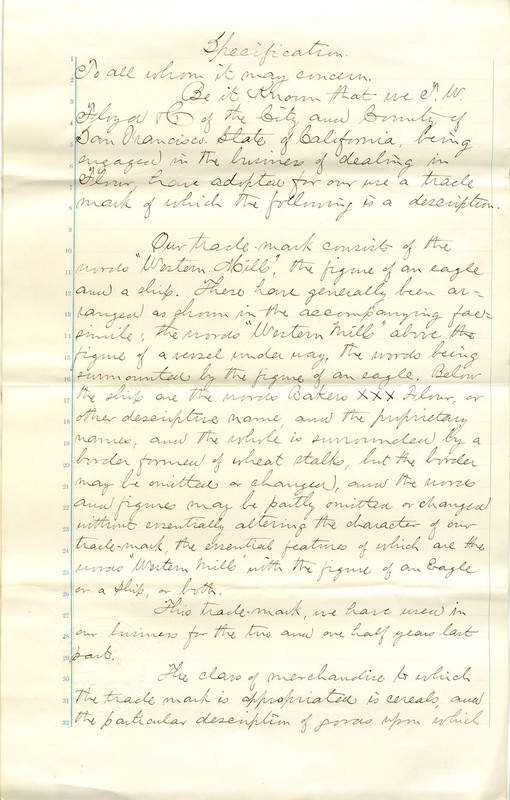 Specification.
To all whom it may concern.
Be it Known that we T. W.
Floyd & Co of the City and County of
San Francisco. State of California, being
engaged in the business of dealing in
Flour, have adopted for our use a trade
mark of which the following is a description.
Our trade-mark consist of the
words "Western Mills", the figure of an eagle
and a ship. These have generally been ar-
ranged as shown in the accompanying fac-
simile; the words "Western Mills" above the
figure of a vessel under way, the words being
surmounted by the figure of an eagle. Below
the ship are the words Bakers XXX Flour, or
other descriptive name, and the proprietary
names, and the whole is surrounded by a
border formed of wheat stalks, but the border
may be omitted or changed, and the words
and figures may be partly omitted or changed
without essentially altering the character of our
trade-mark, the essential features of which are the
words "Western Mills" with the figure of an Eagle
or a Ship, or both.
This trade-mark, we have used in
our business for the two and one half years last
past.
The class of merchandise to which
the trade mark is appropriated is cereals, and
the particular description of goods upon which
1
2
3
4
5
6
7
8
9
10
11
12
13
14
15
16
17
18
19
20
21
22
23
24
25
26
27
28
29
30
31
32